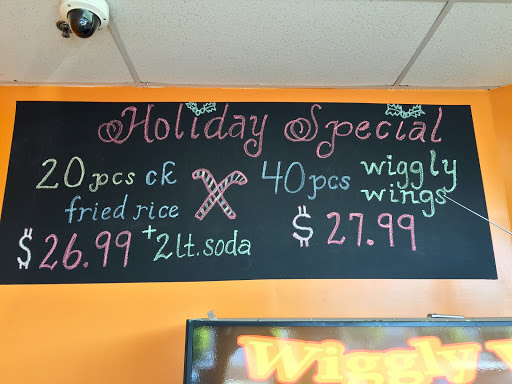 Holiday Special
20 pcs ck
fried rice
$26.99 + 2 lt. soda
40 pcs wiggly
wings
$27.99
Wiggly